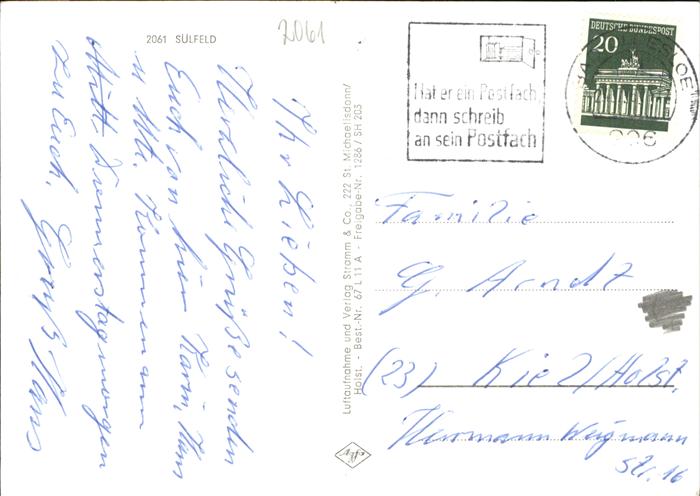 2061 SÜLFELD
2061
Ihr Lieben!
Herzliche Grüße senden
Euch von hier Karin, Hans
u. Mtt. Kommen am
Donnerstagmorgen
zu Euch. Gruß Hans
Luftaufnahme und Verlag Stramm & Co., 222 St. Michaelisdonn/
Holst. - Best.-Nr. 67 L 11 A - Freigabe-Nr. 1286/SH 203
Hat er ein Postfach,
dann schreib
an sein Postfach
DEUTSCHE BUNDESPOST
20
Familie
G. Arndt
(23) Kiel/Holst.
Hermann Weigmann
Str. 16